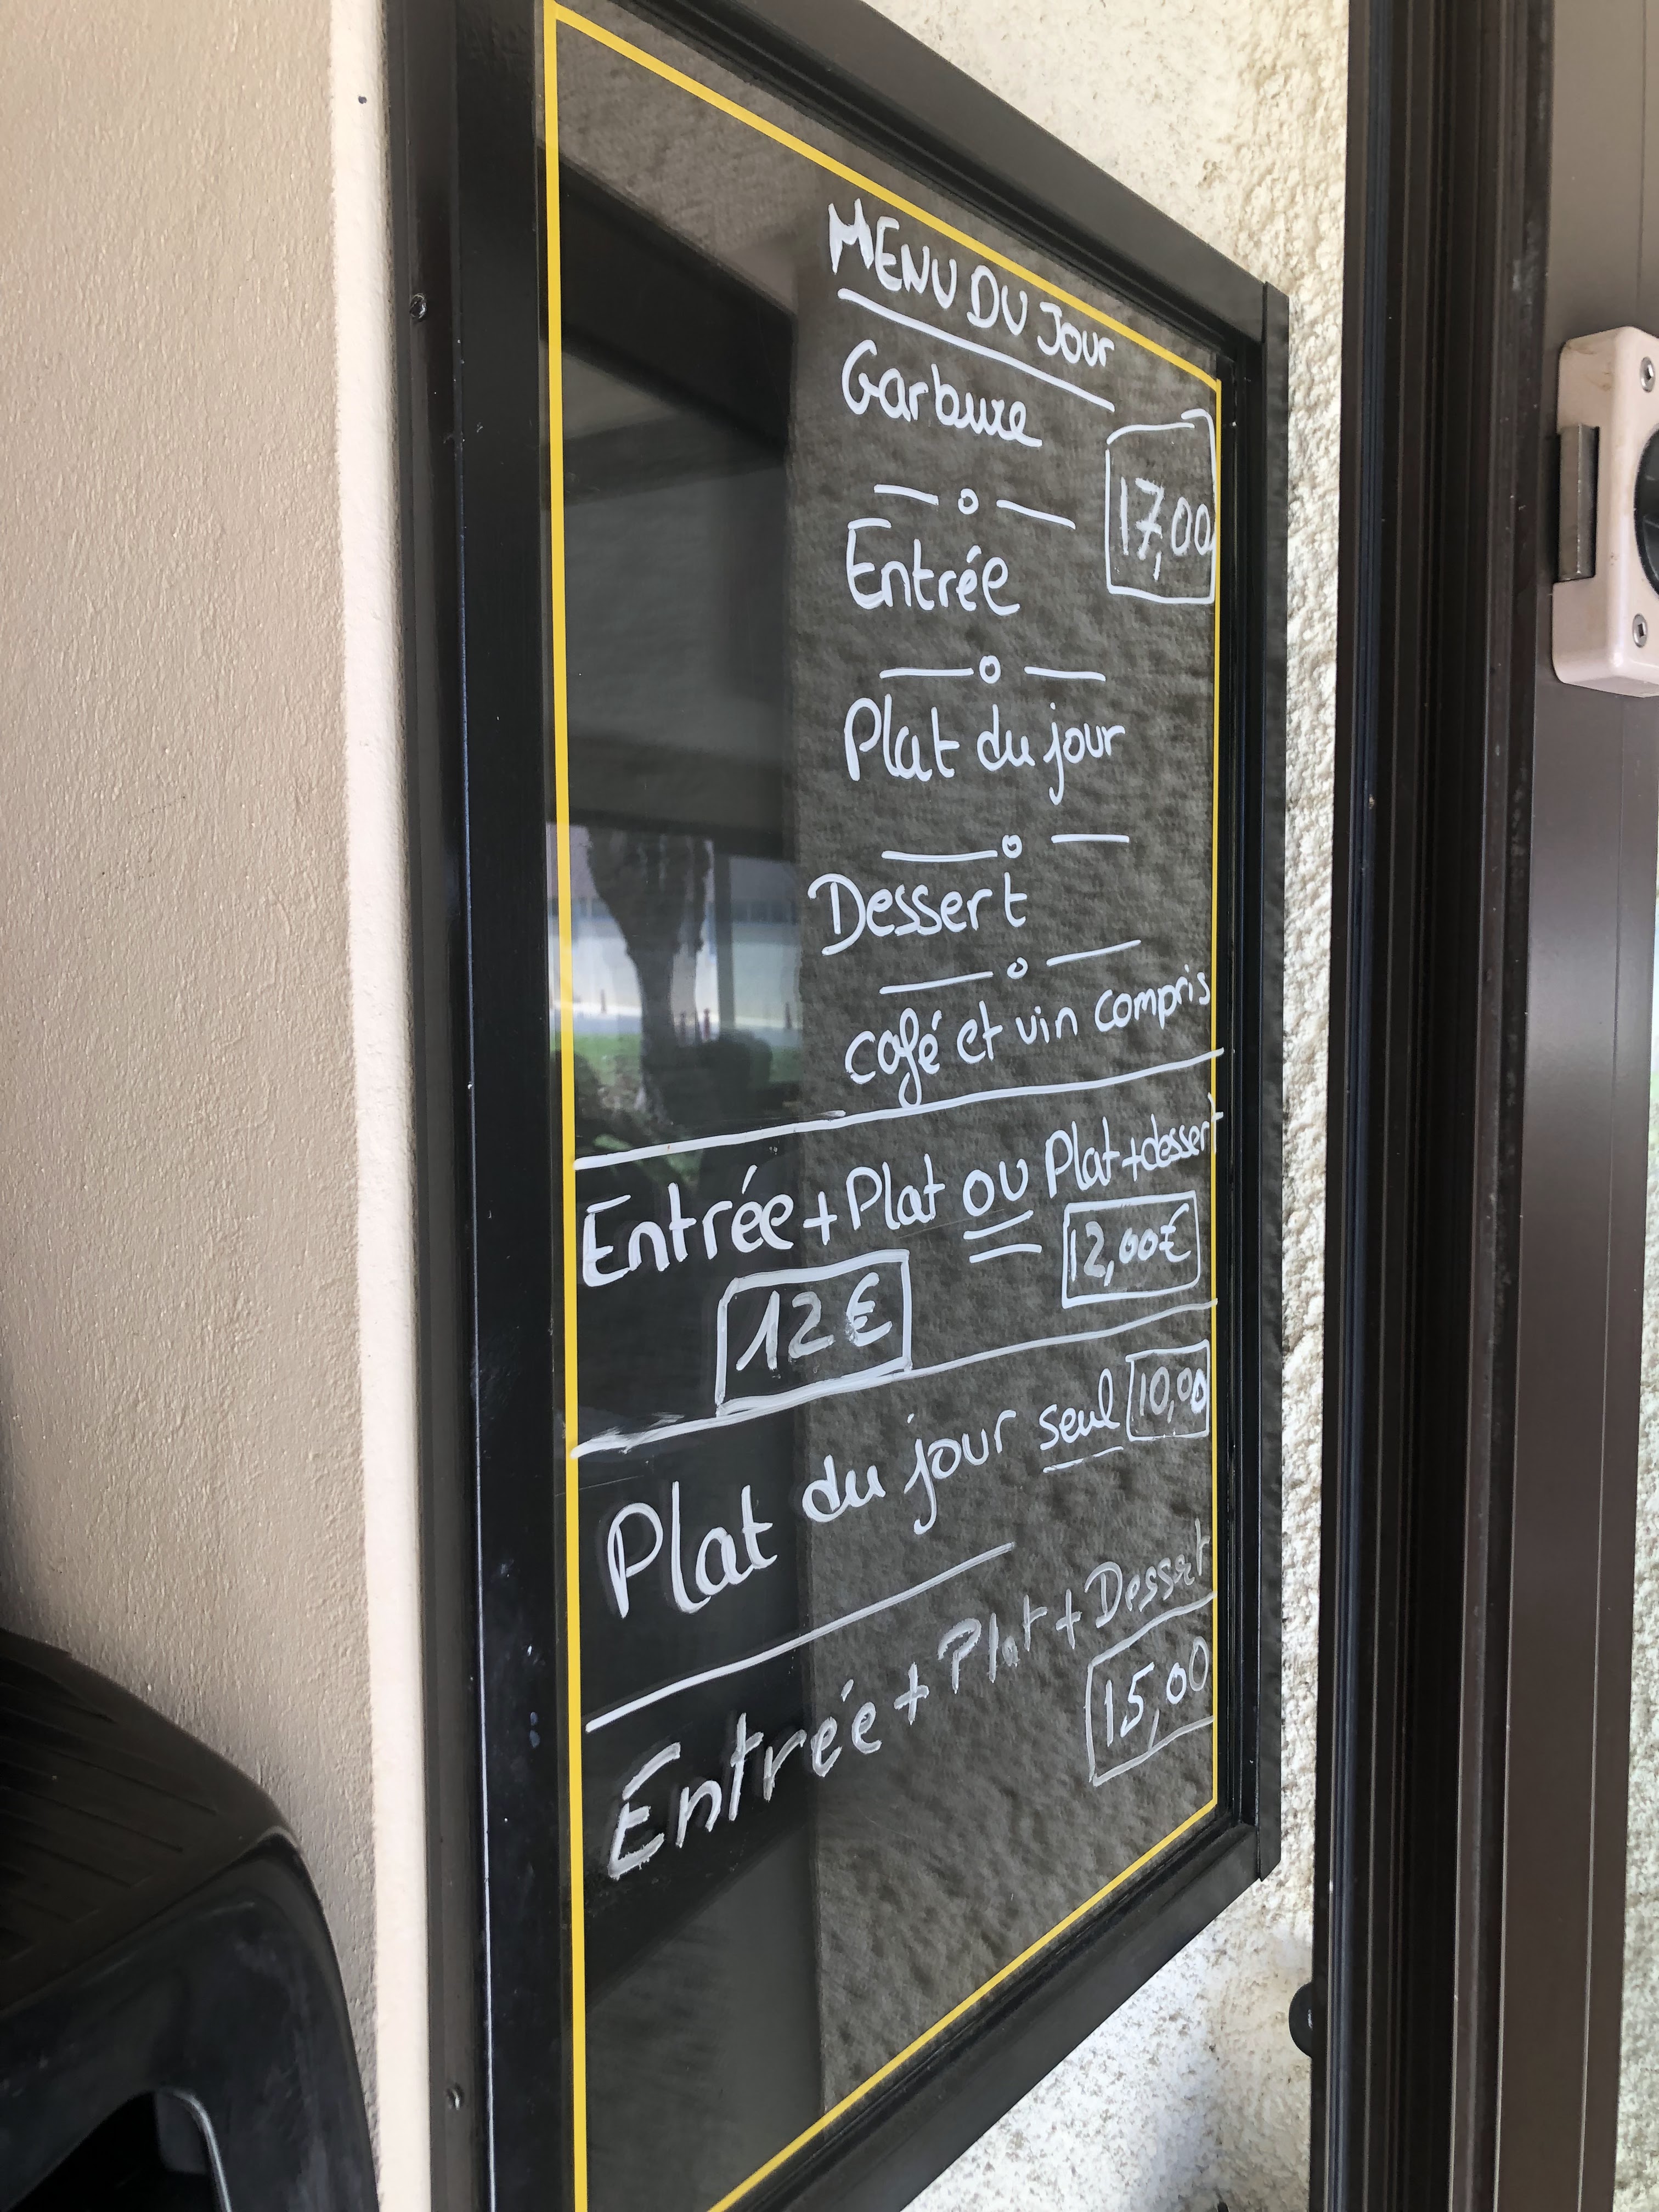 MENU DU JOUR
Garbure
17,00
Entrée
Plat du jour
Dessert
café et vin compris
Entrée + Plat OU Plat + dessert
12€ 12,00€
Plat du jour seul 10,00
Entrée + Plat + Dessert
15,00